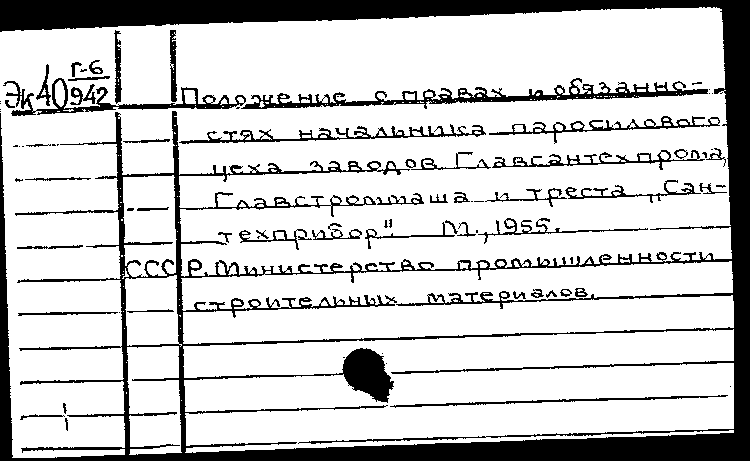 Эк40 Г-6/942
Положение о правах и обязанно-
стях начальника паросилового
цеха заводов Главсантехпрома,
Главстроммаша и треста „Сан-
техприбор". М., 1955.
СССР. Министерство промышленности
строительных материалов.